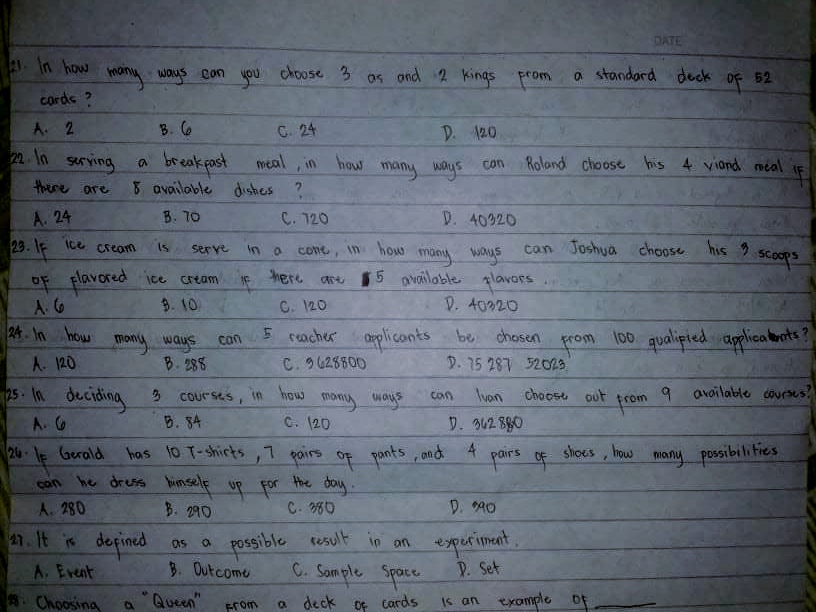 DATE
21. In how many ways can you choose 3 as and 2 kings from a standard deck of 52
cards?
A. 2 B. 6 C. 24 D. 120
22. In serving a breakfast meal, in how many ways can Roland choose his 4 viand meal if
there are 8 available dishes ?
A. 24 B. 70 C. 720 D. 40320
23. If ice cream is serve in a cone, in how many ways can Joshua choose his 3 scoops
of flavored ice cream if there are 5 available flavors.
A. 6 B. 10 C. 120 D. 40320
24. In how many ways can 5 teacher applicants be chosen from 100 qualified applicants?
A. 120 B. 288 C. 3628800 D. 75 287 52023
25. In deciding 3 courses, in how many ways can Ivan choose out from 9 available courses?
A. 6 B. 84 C. 120 D. 362880
26. If Gerald has 10 T-shirts, 7 pairs of pants, and 4 pairs of shoes, how many possibilities
can he dress himself up for the day.
A. 280 B. 290 C. 380 D. 390
27. It is defined as a possible result in an experiment.
A. Event B. Outcome C. Sample Space D. Set
28. Choosing a "Queen" from a deck of cards is an example of ______